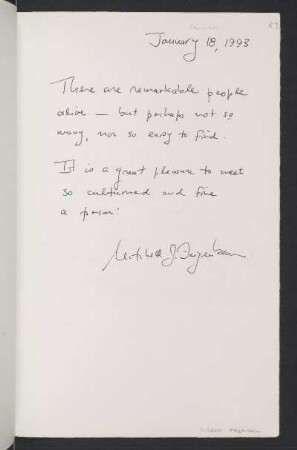 January 18, 1993
There are remarkable people
alive — but perhaps not so
many, nor so easy to find.
It is a great pleasure to meet
so cultured and fine
a person!
Mitchell J. Feigenbaum